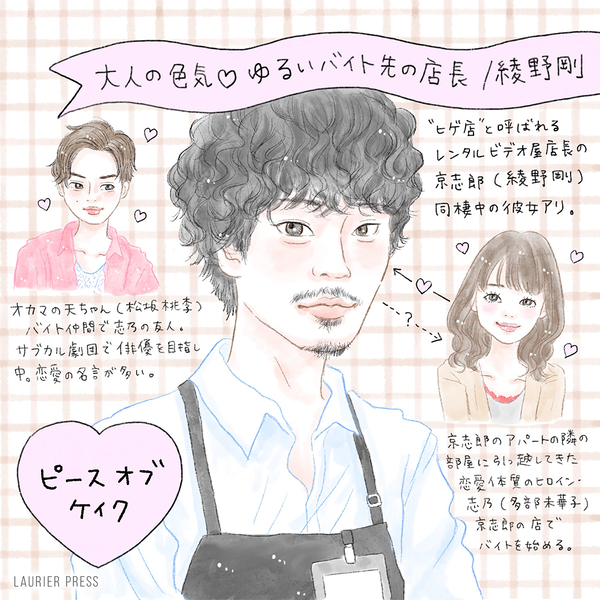 大人の色気♡ゆるいバイト先の店長/綾野剛
"ヒゲ店"と呼ばれる
レンタルビデオ屋店長の
京志郎(綾野剛)
同棲中の彼女アリ。
オカマの天ちゃん(松坂桃李)
バイト仲間で志乃の友人。
サブカル劇団で俳優を目指し
中。恋愛の名言が多い。
?
京志郎のアパートの隣の
部屋に引っ越してきた
恋愛体質のヒロイン・
志乃(多部未華子)
京志郎の店で
バイトを始める。
ピース オブ
ケイク
LAURIER PRESS